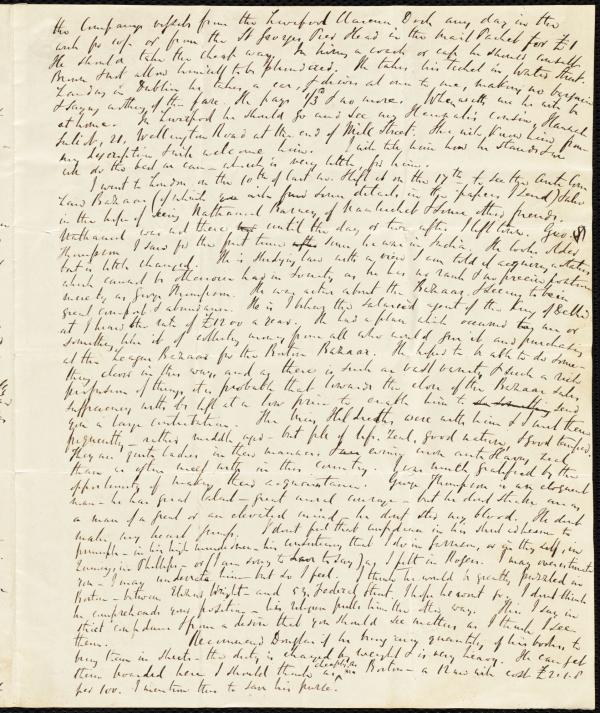 the Company's vessels from the Liverpool Clarence Dock any day in the
week for or from the St Georges Pier Head in the Mail Packet for £1
He should take the cheap way. In hiring a coach or cab he should
not allow himself to be plundered. He takes his ticket in Water Street.
Landing in Dublin he takes a car, & drives at once to me, making no bargain
& saying nothing of the fare. He pays 1/3 & no more. When with me he will be
at home. In Liverpool he should go and see my cousin, Hannah
21, Wellington Road at the end of Mill Street. She will know him from
my description & will welcome him. I will take him how he stands &
we do the best we can which is very little, for him.
I went to London on the 10th of last mo. & left it on the 17th to see the Anti Corn
Law Bazaar (of which you will find some details in the papers I send) &
in the hope of seeing Nathaniel Barney of Nantucket & some other friends.
Nathaniel was not there until the day or two after I left town. Geo.
Thompson I saw for the first time since he was in India. He looks older
but is little changed. He is studying law with a view I am told of acquiring a station
which cannot be otherwise had in society, as he has no rank & no precise position
merely as George Thompson. He was active about the Bazaar, & seems to be in
great comfort & abundance. He is I believe the salaried agent of the King of Delhi
at I heard the rate of £1200 a year. He had a plan which occurred to me or
something like it of collecting money from all who would give it, and purchasing
at the League Bazaar for the Boston Bazaar. He hoped to be able to do some-
thing clever in this way, and as there is such a vast variety & such a rich
profusion of things, it is probable that towards the close of the Bazaar sales
sufficiency will be left at a low price to enable him to send
you a large contribution. The were with him & I met them
frequently, – rather middle aged – but full of life, zeal, good nature, & good
They are quite ladies in their manners & evince more anti slavery zeal
than is often met with in this country. I was much gratified by the
opportunity of making their acquaintance. George Thompson is an eloquent
man – he has great talent – great moral courage – but he dont strike me as
a man of a great or an elevated mind – he dont stir my blood. He dont
make my heart jump. I dont feel that confidence in his
principle – in his high that I do in
Quincy, in Phillips – or (I am sorry to have to say) as I felt in Rogers. I may overestimate
you – I may underrate him – but so I feel. I think he would be greatly puzzled in
Boston – between Elizur Wright and 39, Federal Street. I hope he wont go. I dont think
he comprehends your position – his religion pulls him the other way. This I say in
strict confidence & from a desire that you should see matters as I think I see
them. Recommend Douglass if he bring any quantity of his books to
bring them in sheets – the duty is charged by weight & is very heavy. He can get
them boarded here I should think as cheap as in Boston – a 12mo will cost £2.1.8
per 100. I mention this to save his purse.